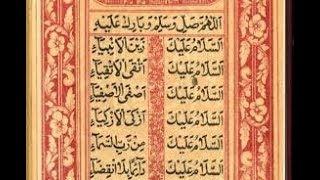 اَللّٰهُمَّ صَلِّ وَسَلِّمْ وَبَارِكْ عَلَيْهِ
اَلسَّلَامُ عَلَيْكَ زَيْنَ الْاَنْبِيَاءِ
اَلسَّلَامُ عَلَيْكَ اَتْقَى الْاَتْقِيَاءِ
اَلسَّلَامُ عَلَيْكَ اَصْفَى الْاَصْفِيَاءِ
اَلسَّلَامُ عَلَيْكَ اَزْكَى الْاَزْكِيَاءِ
اَلسَّلَامُ عَلَيْكَ مِنْ رَبِّ السَّمَاءِ
اَلسَّلَامُ عَلَيْكَ دَائِمًا بِلَا انْقِضَاءِ